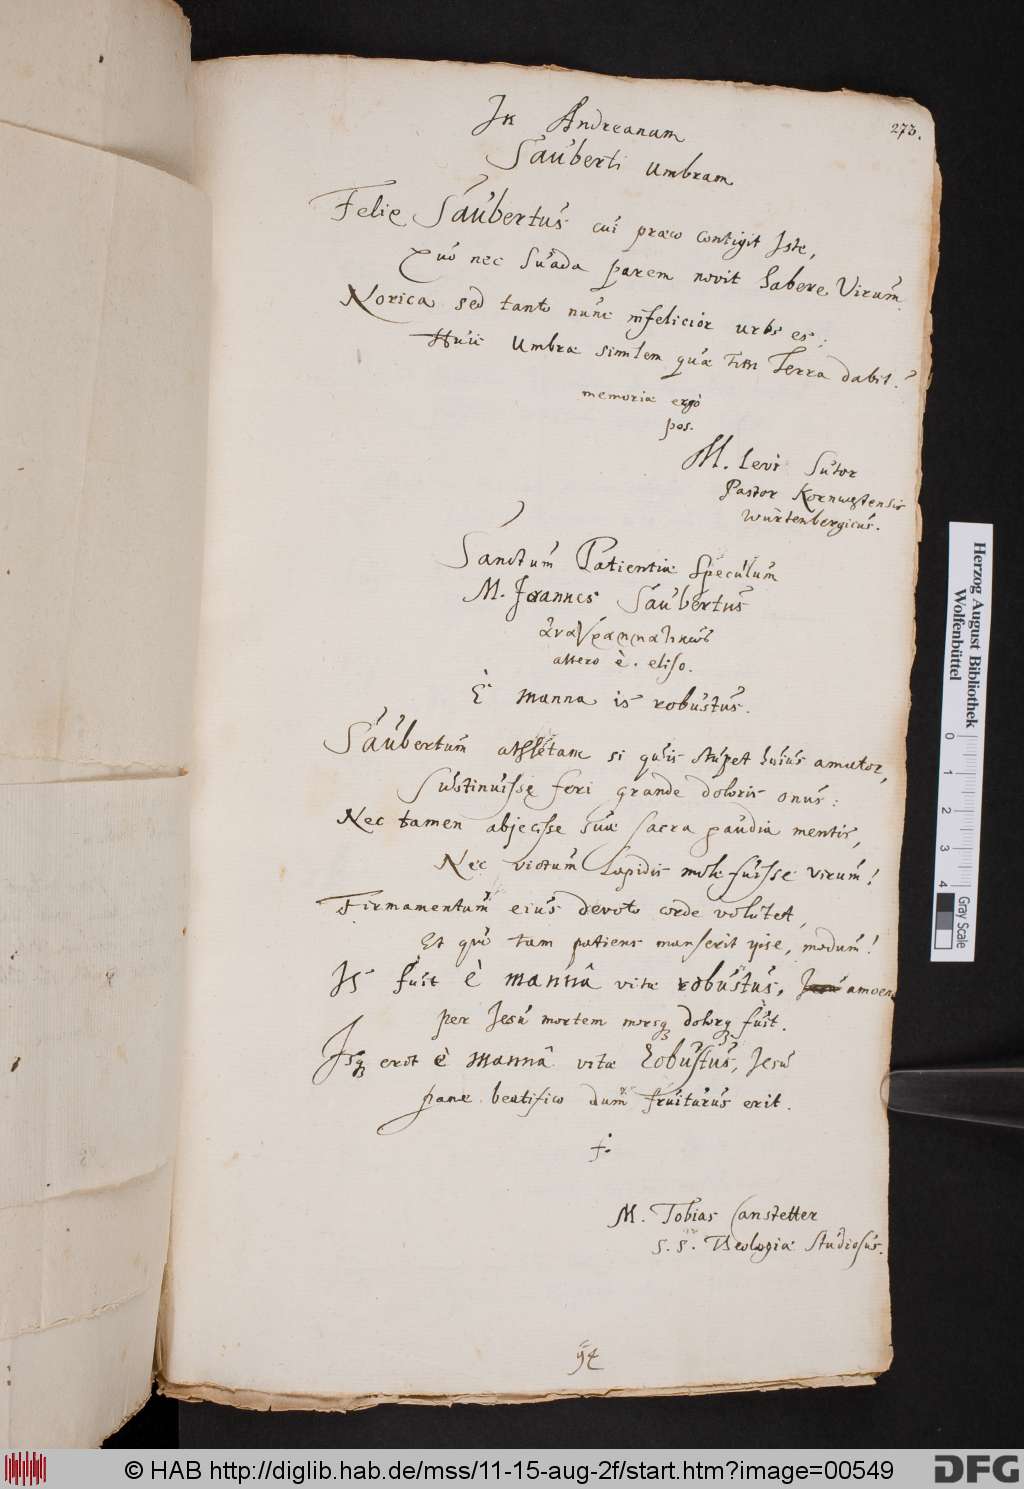 273.
In Andreanam
Sauberti Umbram
Felix Saubertus cui præco contigit Iste,
Quo nec Suada parem novit habere Virum
Norica sed tanto nunc infelicior urbs es;
Huic Umbræ similem quæ Tim Terra dabit?
memoriæ ergò
pos.
M. Levi Sutor
Pastor Kornwestensis
Würtenbergicus.
Sanctum Patientiæ Speculum
M. Joannes Saubertus
ἀναγραμματικῶς
altero è. eliso.
È manna is robustus.
Saubertum athletam si quis stupet huius amator,
Sustinuisse feri grande doloris onus:
Nec tamen abjecisse suæ sacra gaudia mentis,
Nec victum Lapidis mole fuisse virum!
Firmamentum eius devoto corde volutet,
Et quo tam patiens manserit ipse, modum!
Is fuit è mannâ vitæ robustus, amoen
per Jesu mortem morsq dolorq fuit.
Isq erit è mannâ vitæ Robustus, Jesu
pane beatifico dum fruiturus erit.
f.
M. Tobias Canstetter
S. S. Theologiæ Studiosus.
Herzog August Bibliothek
Wolfenbüttel
0 1 2 3 4
Gray Scale
© HAB http://diglib.hab.de/mss/11-15-aug-2f/start.htm?image=00549
DFG